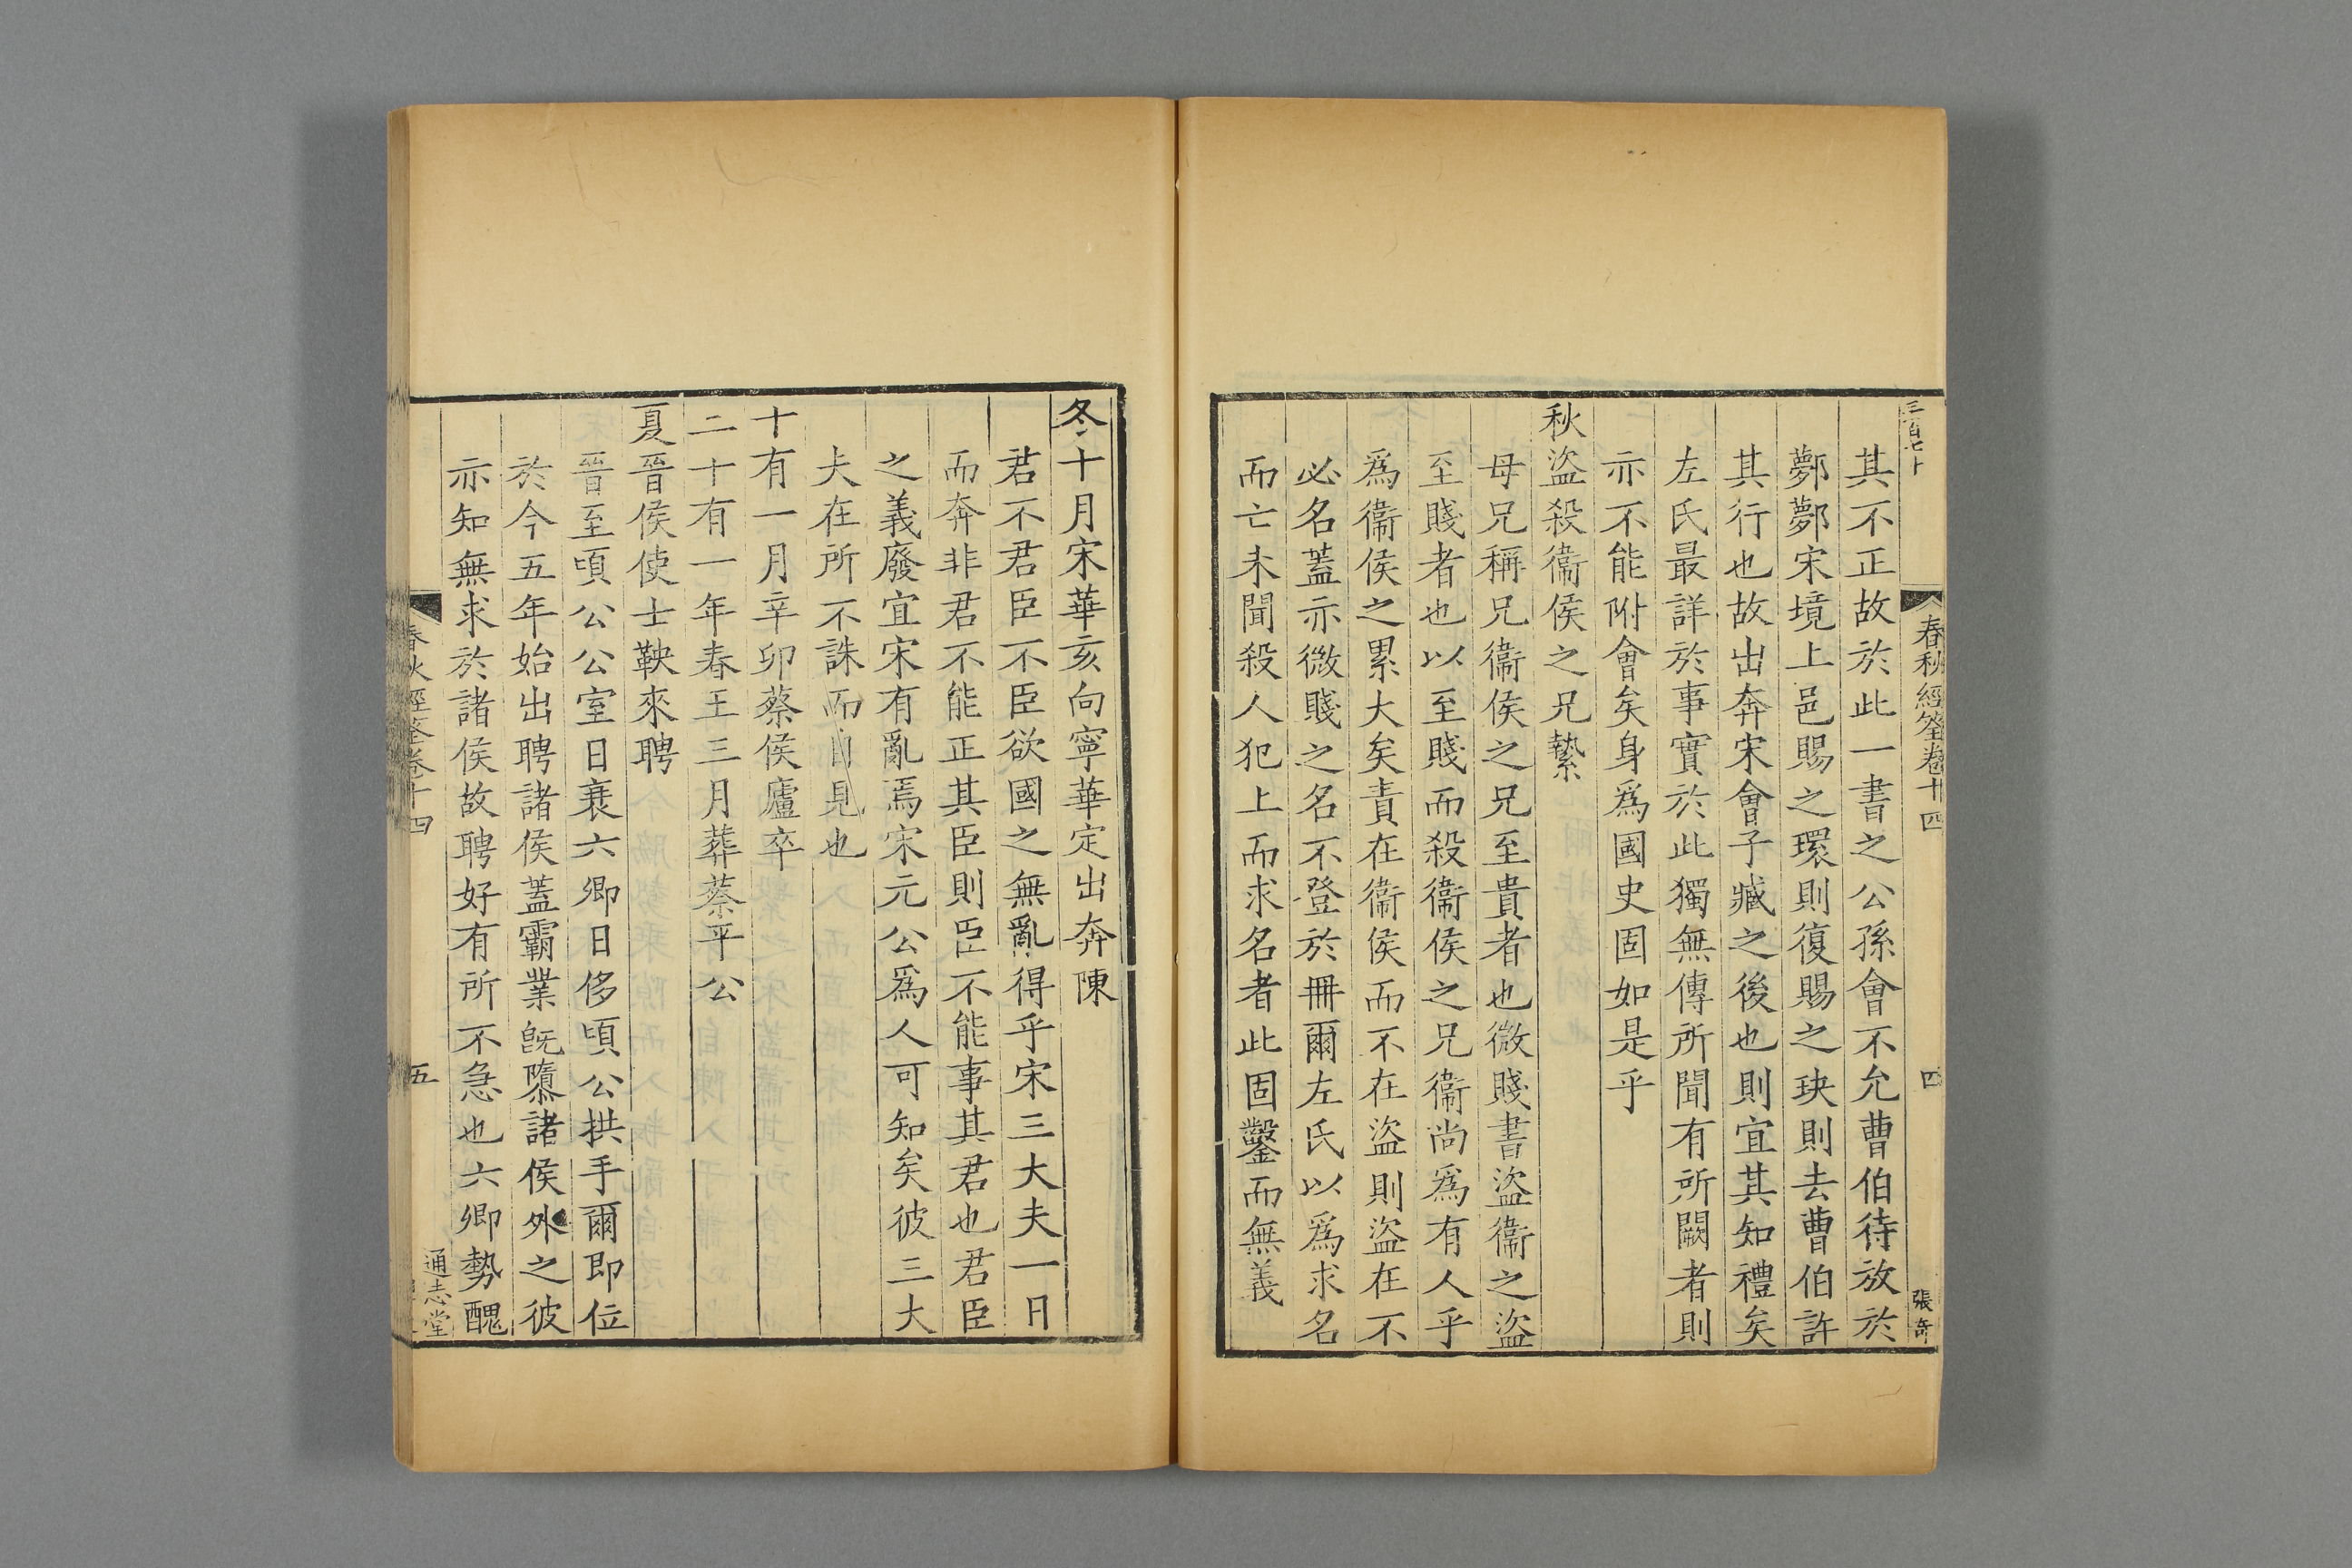 三百七十
春秋經筌卷十四
四
張奇
其不正故於此一書之公孫會不允曹伯待放於
鄸鄸宋境上邑賜之環則復賜之玦則去曹伯許
其行也故出奔宋會子臧之後也則宜其知禮矣
左氏最詳於事實於此獨無傳所聞有所闕者則
亦不能附會矣身爲國史固如是乎
秋盜殺衞侯之兄縶
母兄稱兄衞侯之兄至貴者也微賤書盜衞之盜
至賤者也以至賤而殺衞侯之兄衞尚爲有人乎
爲衞侯之累大矣責在衞侯而不在盜則盜在不
必名蓋亦微賤之名不登於冊爾左氏以爲求名
而亡未聞殺人犯上而求名者此固鑿而無義
冬十月宋華亥向寧華定出奔陳
君不君臣不臣欲國之無亂得乎宋三大夫一日
而奔非君不能正其臣則臣不能事其君也君臣
之義廢宜宋有亂焉宋元公爲人可知矣彼三大
夫在所不誅而自見也
十有一月辛卯蔡侯廬卒
二十有一年春王三月葬蔡平公
夏晉侯使士鞅來聘
晉至頃公公室日衰六卿日侈頃公拱手爾即位
於今五年始出聘諸侯蓋霸業旣隳諸侯外之彼
亦知無求於諸侯故聘好有所不急也六卿勢醜
春秋經筌卷十四
五
通志堂